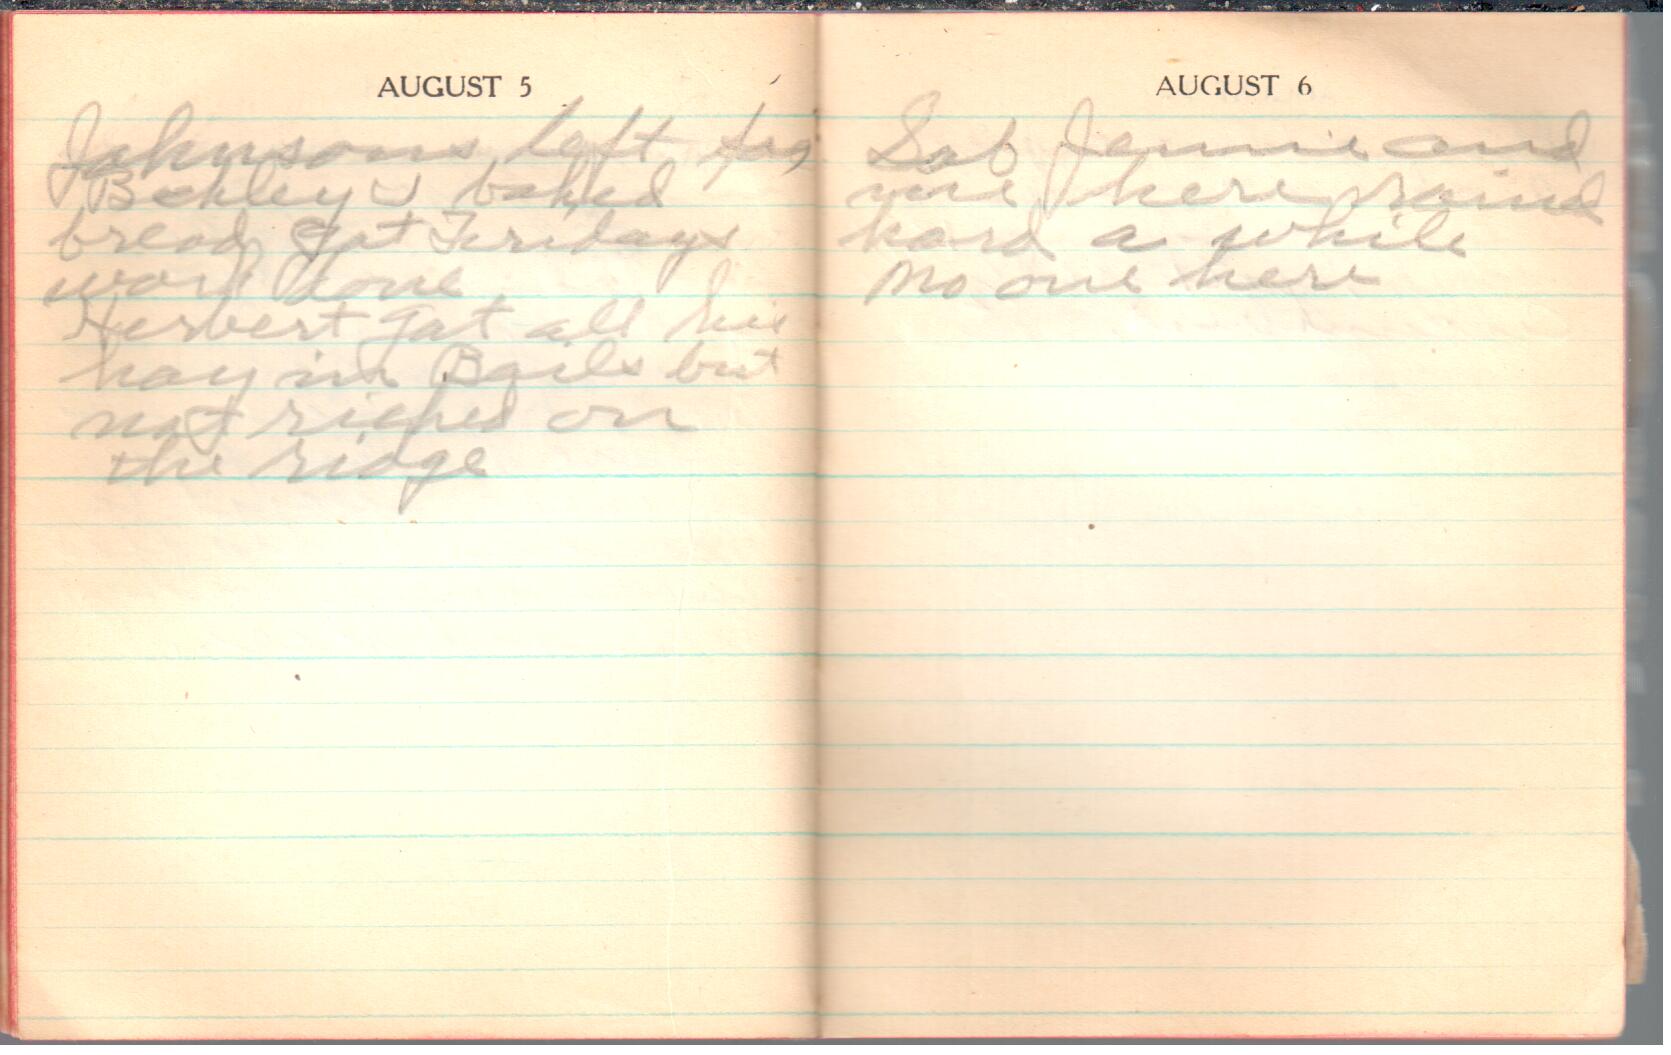 AUGUST 5
Johnsons left for
Bckley I baked
bread got Fridays
work done
Herbert got all his
hay in Bails but
not riped on
the ridge
AUGUST 6
Sab Jennie and
me here raind
hard a while
no one here